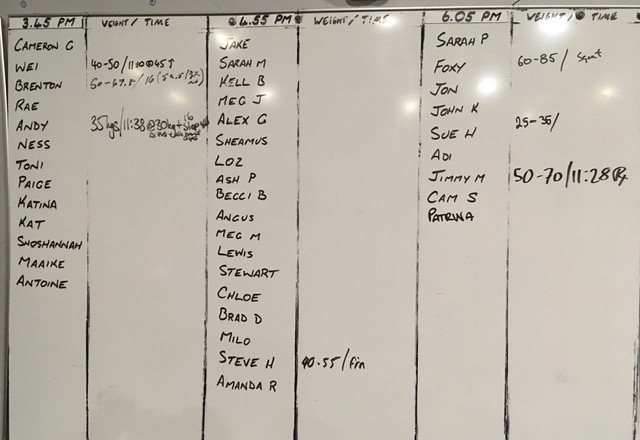 3.45 PM WEIGHT/TIME
CAMERON G
WEI 40-50/11:10@45
BRENTON
RAE
ANDY 35kgs/11:38@30kg+
NESS
TONI
PAIGE
KATINA
KAT
SHOSHANNAH
MAAIKE
ANTOINE
4.55 PM WEIGHT/TIME
JAKE
SARAH M
KELL B
MEG J
ALEX G
SHEAMUS
LOZ
ASH P
BECCI B
ANGUS
MEG M
LEWIS
STEWART
CHLOE
BRAD D
MILO
STEVE H 40-55/fin
AMANDA R
6.05 PM WEIGHT/TIME
SARAH P
FOXY 60-85/ Squat
JON
JOHN K
SUE H 25-35/
ADI
JIMMY M 50-70/11:28 Rx
CAM S
PATRINA